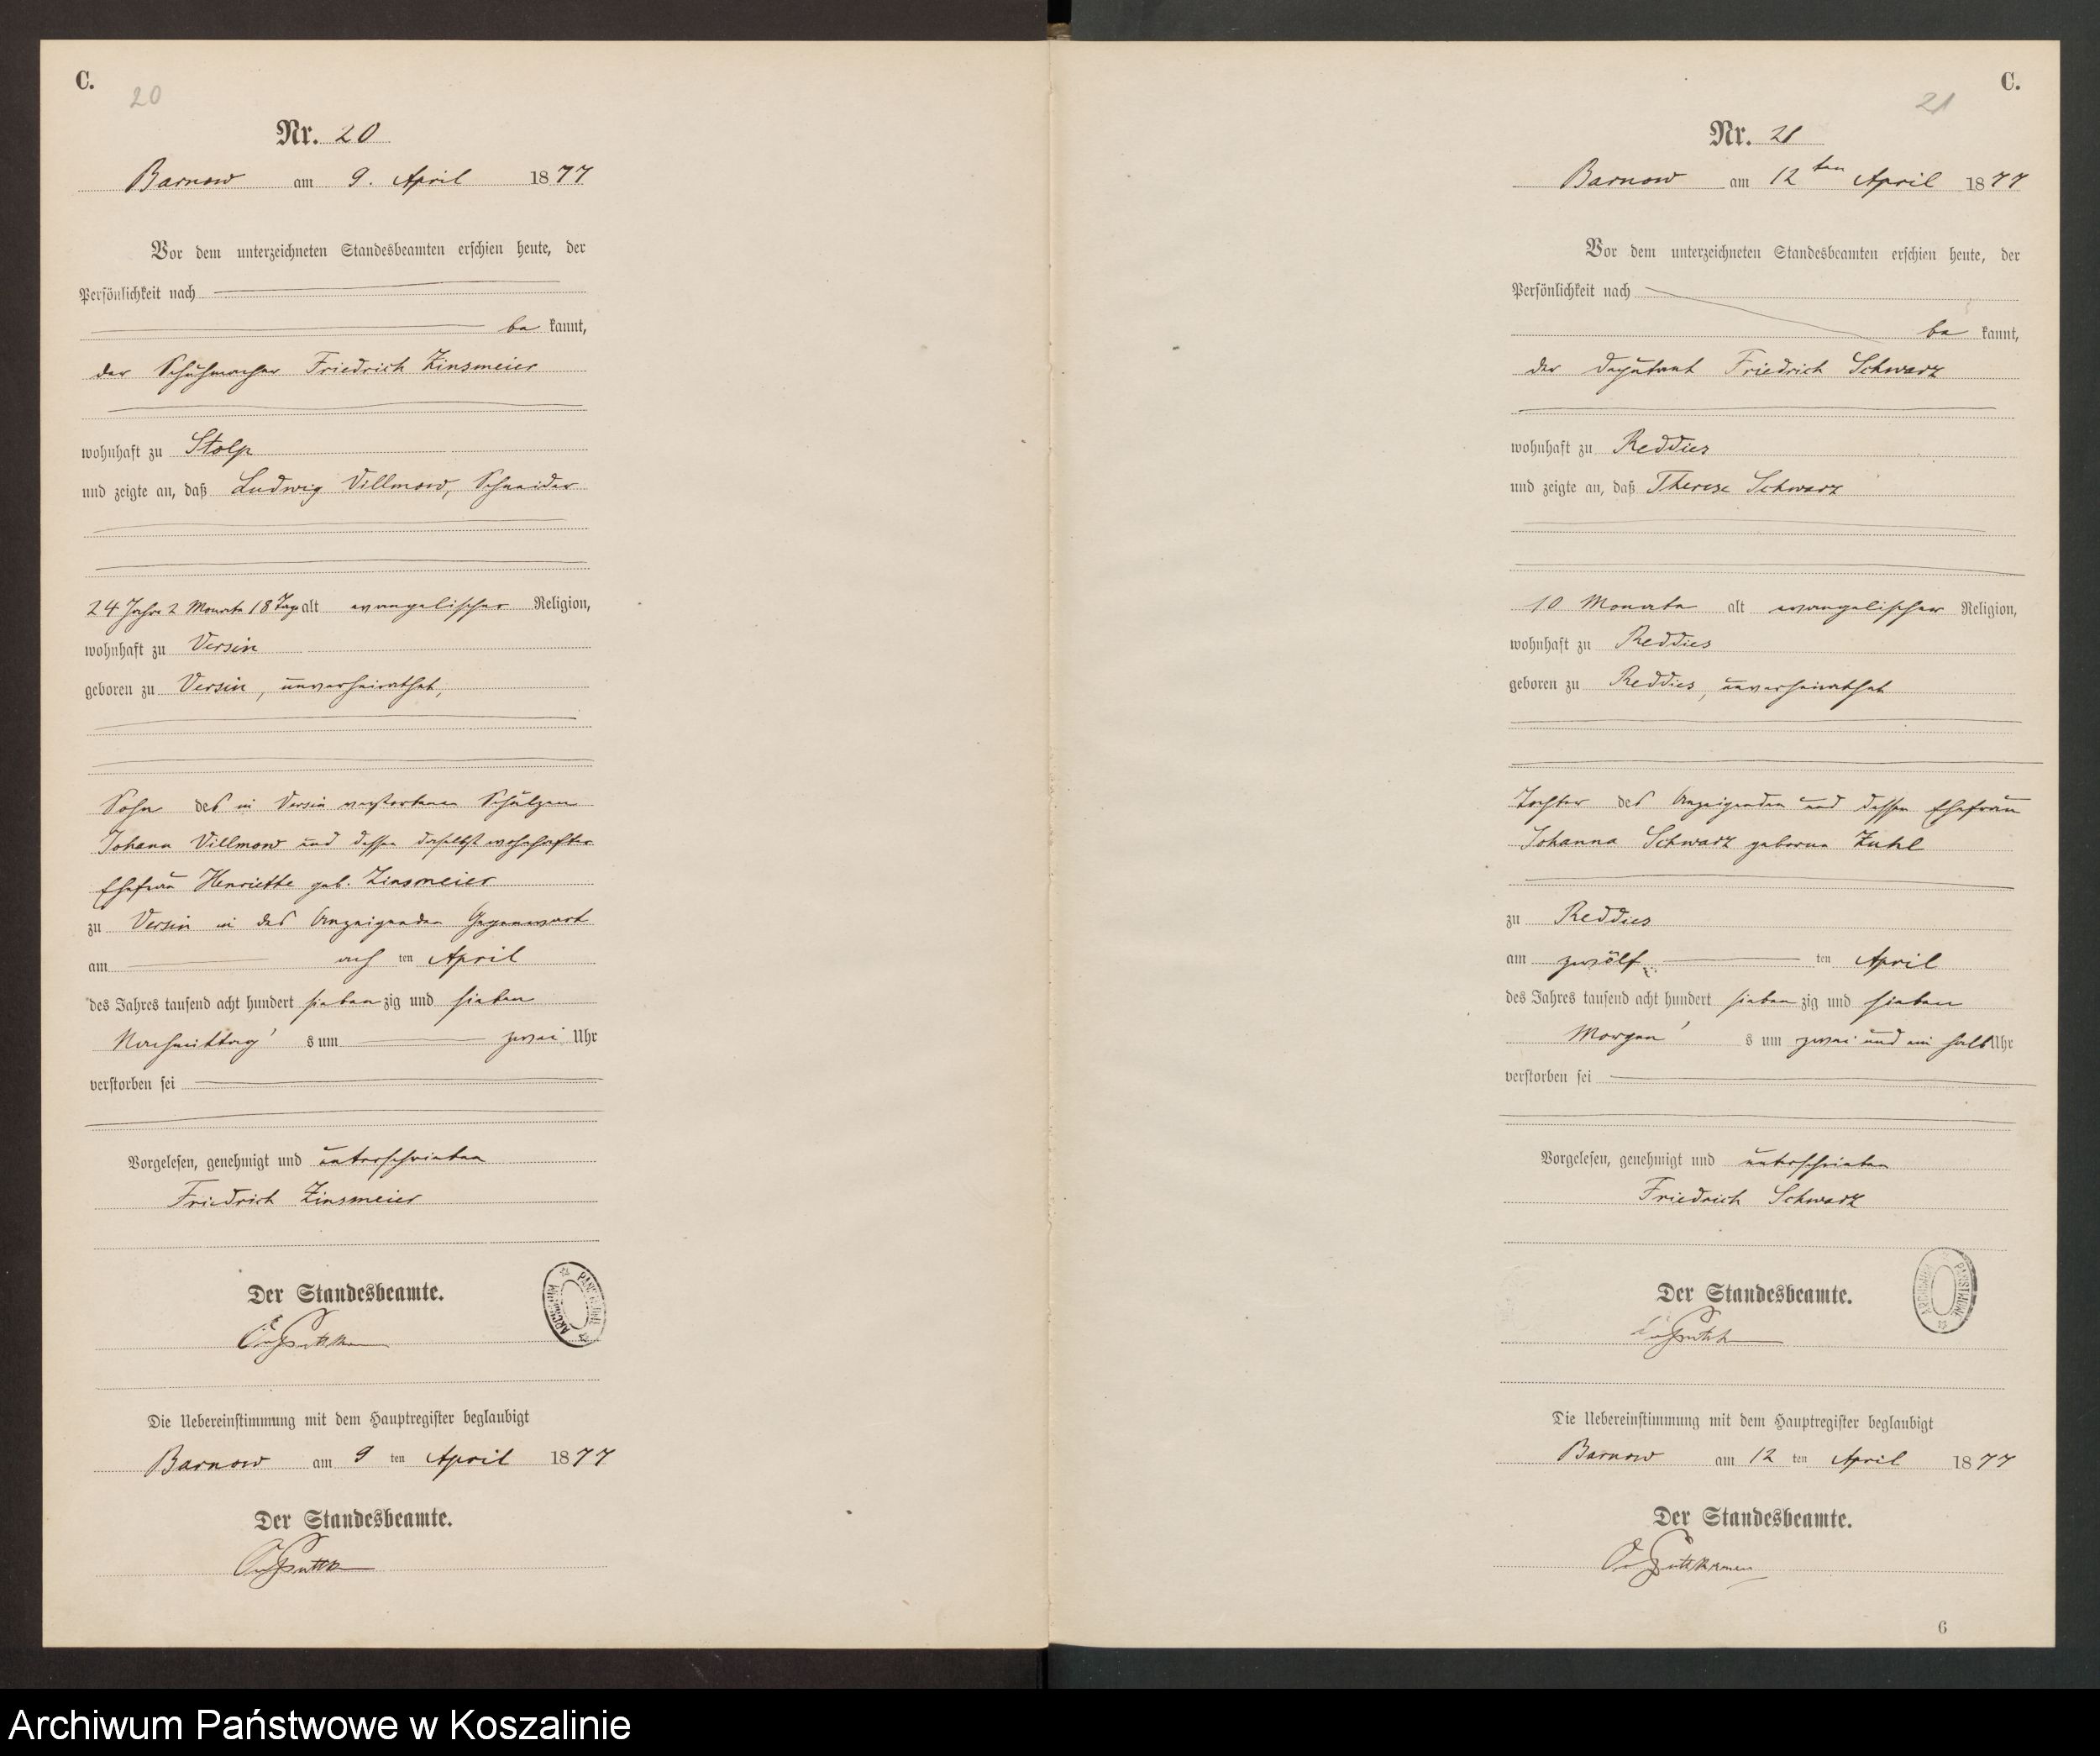 C.
20
Nr. 20
Barnow am 9. April 1877
Vor dem unterzeichneten Standesbeamten erschien heute, der
Persönlichkeit nach
be kannt,
der Schuhmacher Friedrich Zinsmeier
wohnhaft zu Stolp
und zeigte an, daß Ludwig Villmow, Schneider
24 Jahre 2 Monate 18 Tage alt evangelischer Religion,
wohnhaft zu Versin
geboren zu Versin, unverheirathet,
Sohn des in Versin verstorbenen Schulzen
Johann Villmow und dessen daselbst wohnhafter
Ehefrau Henriette geb. Zinsmeier
zu Versin in des Anzeigenden Gegenwart
am ach ten April
des Jahres tausend acht hundert sieben zig und sieben
Nachmittag's um zwei Uhr
verstorben sei
Vorgelesen, genehmigt und unterschrieben
Friedrich Zinsmeier
Der Standesbeamte.
Die Uebereinstimmung mit dem Hauptregister beglaubigt
Barnow am 9 ten April 1877
Der Standesbeamte.
C.
21
Nr. 21
Barnow am 12ten April 1877
Vor dem unterzeichneten Standesbeamten erschien heute, der
Persönlichkeit nach
be kannt,
der Deputant Friedrich Schwarz
wohnhaft zu Reddies
und zeigte an, daß Therese Schwarz
10 Monate alt evangelischer Religion,
wohnhaft zu Reddies
geboren zu Reddies, unverheirathet
Tochter des Anzeigenden und dessen Ehefrau
Johanna Schwarz geborne Zuhl
zu Reddies
am zwölf ten April
des Jahres tausend acht hundert sieben zig und sieben
Morgen's um zwei und ein halb Uhr
verstorben sei
Vorgelesen, genehmigt und unterschrieben
Friedrich Schwarz
Der Standesbeamte.
Die Uebereinstimmung mit dem Hauptregister beglaubigt
Barnow am 12 ten April 1877
Der Standesbeamte.
6
Archiwum Państwowe w Koszalinie